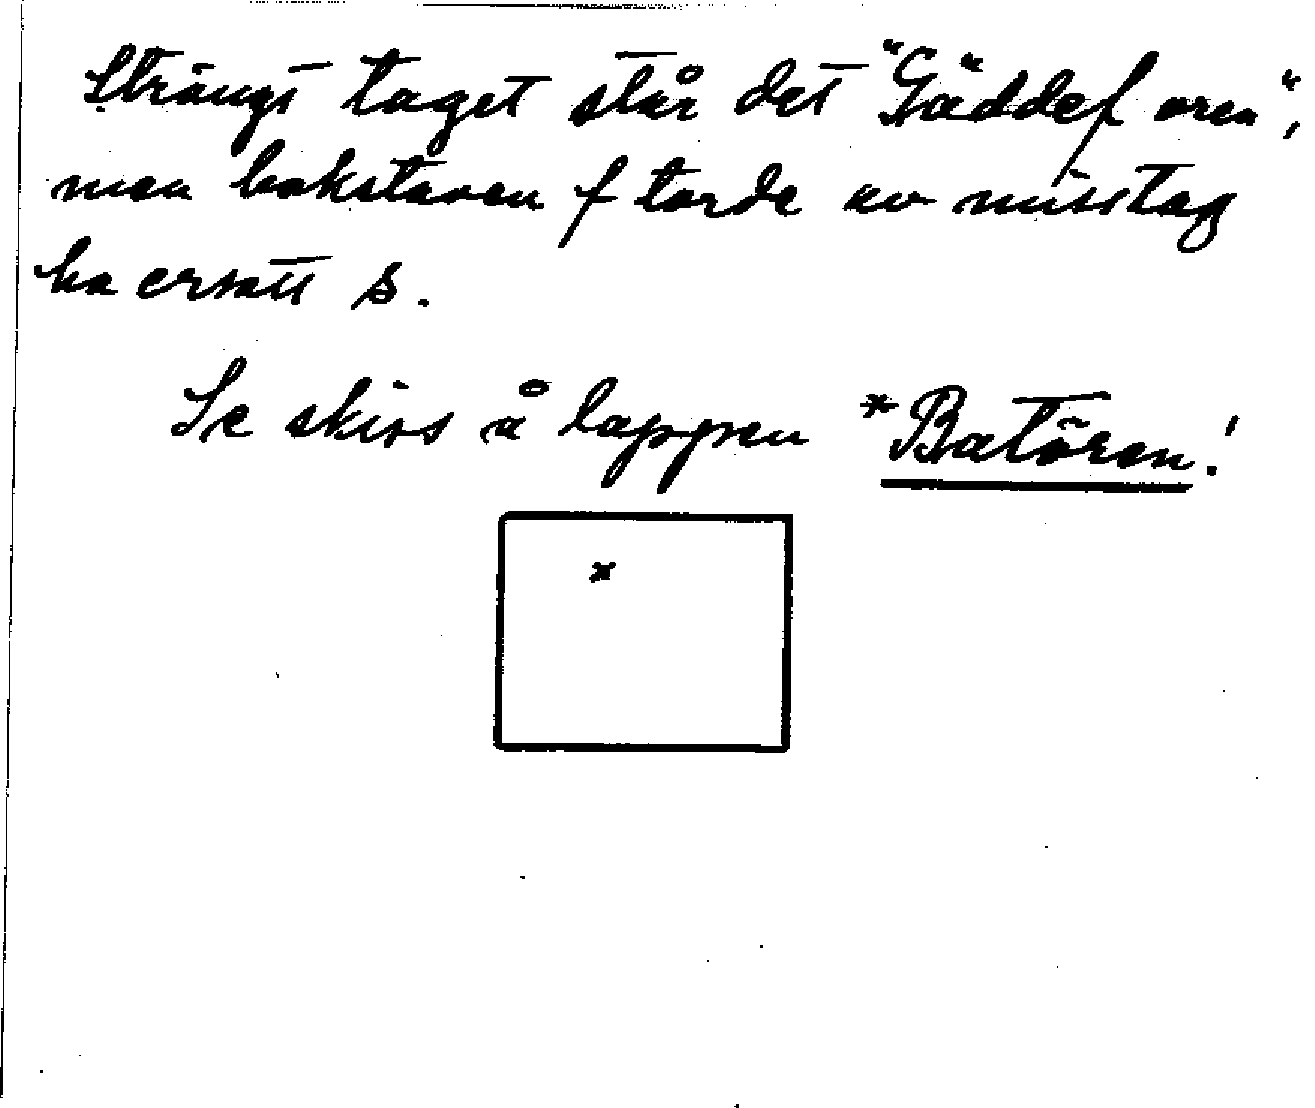 Strängt taget står det "Gäddef oren",
men bokstaven f torde av misstag
ha ersatt s.
Se skiss å lappen *Batören!
*